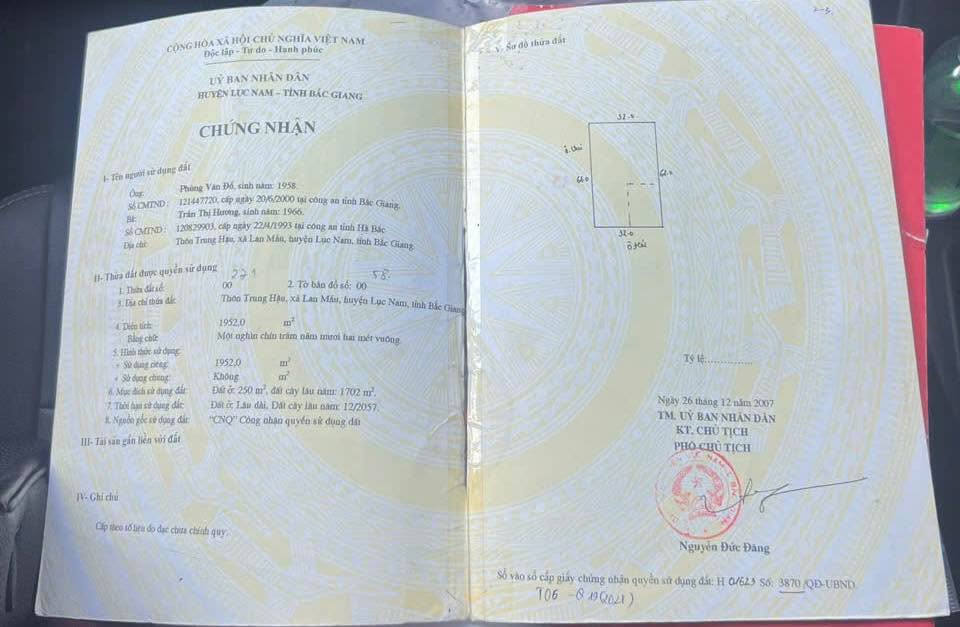 CỘNG HÒA XÃ HỘI CHỦ NGHĨA VIỆT NAM
Độc lập - Tự do - Hạnh phúc
UỶ BAN NHÂN DÂN
HUYỆN LỤC NAM – TỈNH BẮC GIANG
CHỨNG NHẬN
I- Tên người sử dụng đất
Ông: Phùng Văn Đồ, sinh năm: 1958.
Số CMTND : 121447720, cấp ngày 20/6/2000 tại công an tỉnh Bắc Giang.
Bà: Trần Thị Hương, sinh năm: 1966.
Số CMTND : 120829903, cấp ngày 22/4/1993 tại công an tỉnh Hà Bắc
Địa chỉ: Thôn Trung Hậu, xã Lan Mẫu, huyện Lục Nam, tỉnh Bắc Giang.
II- Thửa đất được quyền sử dụng
271 58
1. Thửa đất số: 00 2. Tờ bản đồ số: 00
3. Địa chỉ thửa đất: Thôn Trung Hậu, xã Lan Mẫu, huyện Lục Nam, tỉnh Bắc Giang
4. Diện tích: 1952,0 m²
Bằng chữ: Một nghìn chín trăm năm mươi hai mét vuông.
5. Hình thức sử dụng:
+ Sử dụng riêng: 1952,0 m²
+ Sử dụng chung: Không m²
6. Mục đích sử dụng đất: Đất ở: 250 m², đất cây lâu năm: 1702 m².
7. Thời hạn sử dụng đất: Đất ở: Lâu dài, Đất cây lâu năm: 12/2057.
8. Nguồn gốc sử dụng đất: "CNQ" Công nhận quyền sử dụng đất
III- Tài sản gắn liền với đất
IV- Ghi chú
Cấp theo số liệu đo đạc chưa chính quy.
V- Sơ đồ thửa đất
Tỷ lệ:
Ngày 26 tháng 12 năm 2007
TM. UỶ BAN NHÂN DÂN
KT. CHỦ TỊCH
PHÓ CHỦ TỊCH
Nguyễn Đức Đăng
Số vào sổ cấp giấy chứng nhận quyền sử dụng đất: H 01623 Số: 3870 /QĐ-UBND